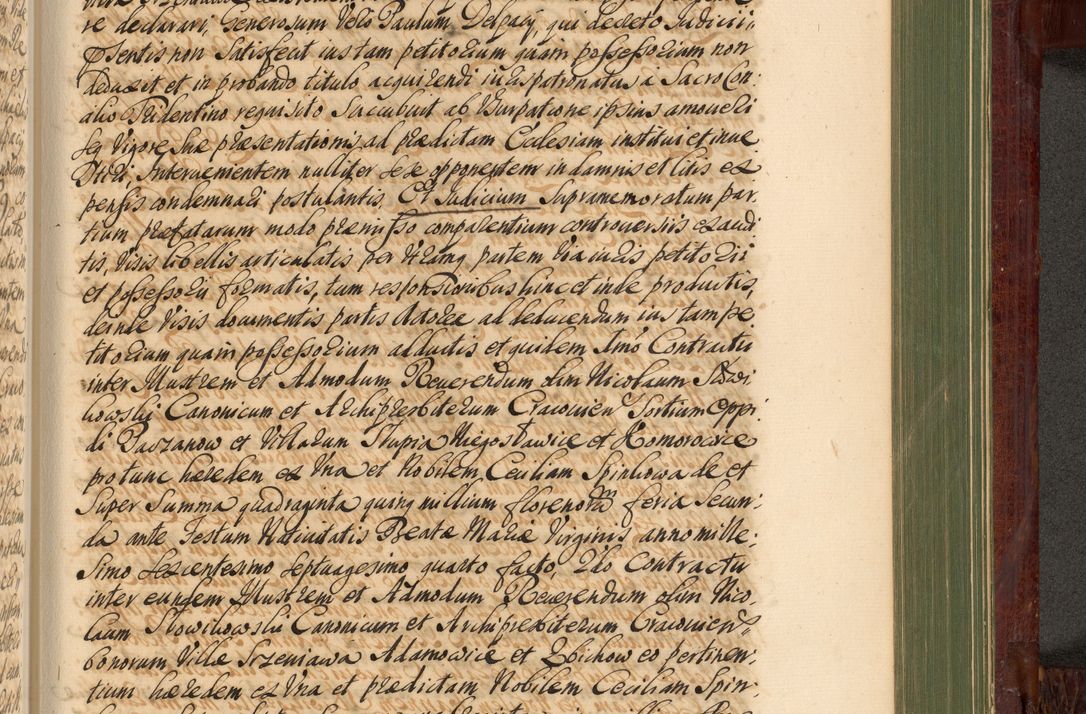 re declarari, Generosum Vero Paulum Delpacy, qui decreto Judicii
Psentis non Satisfecit ius tam petitorium quam possessorium non
deduxit et in probando titulo acquirendi iurispatronatus a Sacro Con:
cilio Tridentino requisito Saccubuit ab Usurpatione ipsius amoueri
seq Vigore suæ præsentationis, ad prædictam Ecclesiam institui et inue
stiri, Interuenientem nulliter sese opponentem in damnis et litis ex
pensis condemnari postulantis. Et Judicium Supramemoratum par
tium præfatarum modo præmisso comparentium controuersiis exaudi
tis, Visis libellis articulatis per Utramq partem Via iuris petitorii
et possessorii formatis, tum responsionibus hinc et inde productis,
deinde Visis documentis partis Actoreæ ad deducendum ius tam pe
titorium quam possessorium adductis et quidem Imo Contractu
inter Illustrem et Admodum Reuerendum olim Nicolaum Słowi
kowski Canonicum et Archipresbiterum Cracouien Sortium oppi
di Paczanow et Villarum Słupia Niegosławice et Komorowice
pro tunc hæredem ex Una et Nobilem Ceciliam Spinkowa de et
Super Summa quadraginta quinq millium florenorm feria Secun:
da ante Festum Natiuitatis Beatæ Mariæ Virginis anno mille:
simo sexcentesimo septuagesimo quarto facto, 2do Contractu
inter eundem Illustrem et Admodum Reuerendum olim Nico
laum Słowikowski Canonicum et Archipresbiterum Cracouien
bonorum Villæ Srzeniawa Adamowice et Zbichow eo pertinen:
tium hæredem ex Una et prædictam Nobilem Ceciliam Spin: